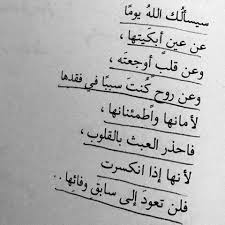 سيسألُك اللهُ يومًا
عن عينٍ أبكَيتها ،
وعن قلبٍ أوجعتَه ،
وعن روح كُنتَ سببًا في فقدها
لأمانها واطمئنانها ،
فاحذر العبث بالقلوب ،
لأنها إذا انكسرت
فلن تعودَ إلى سابقِ وفائِها ..